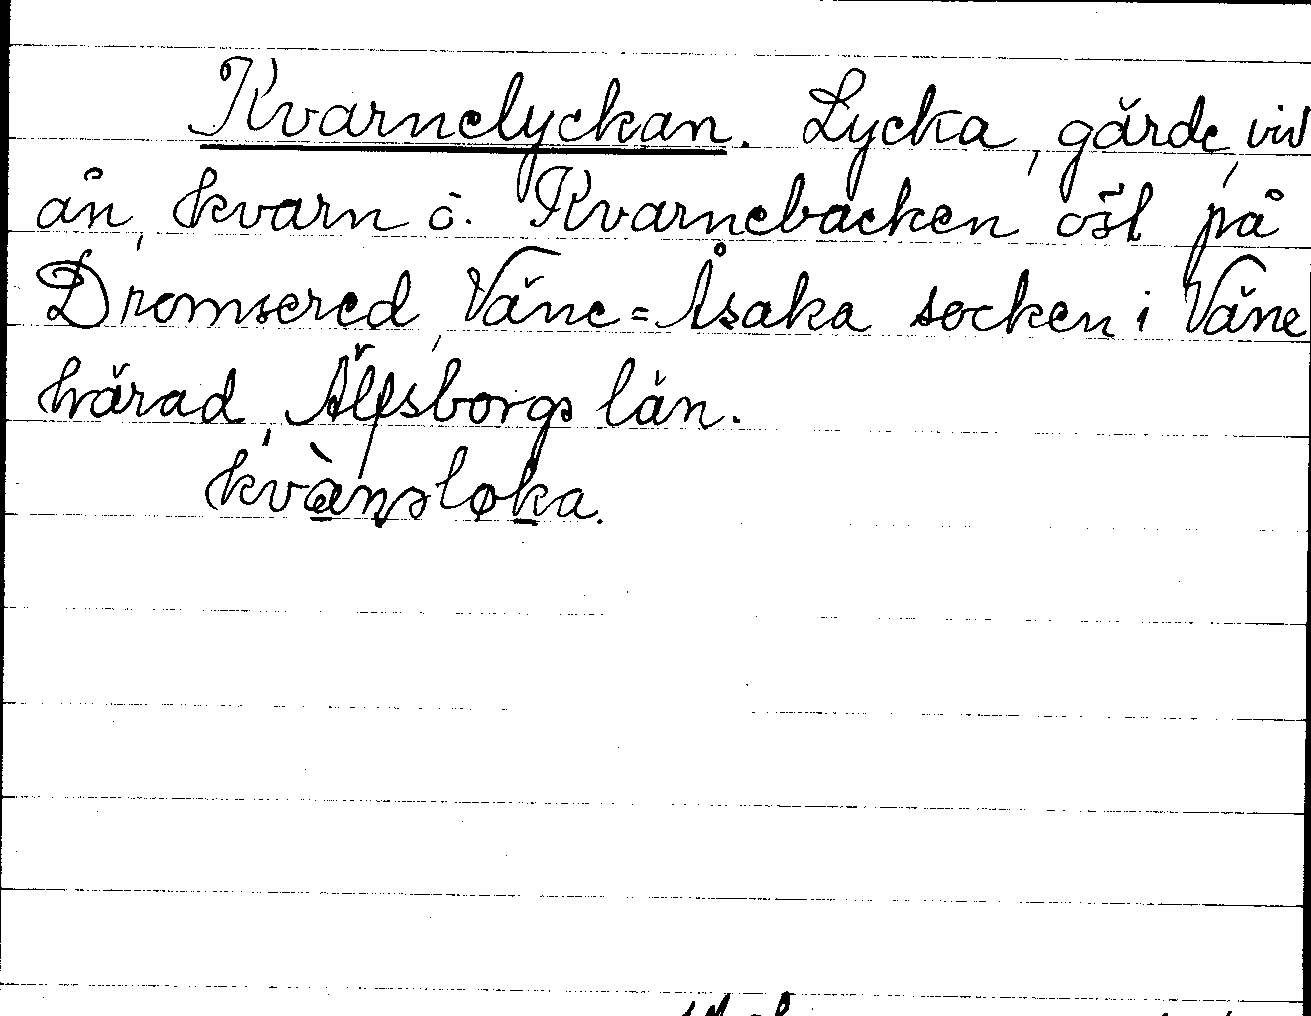 Kvarnelyckan. Lycka, gärde, vid
ån, kvarn o. Kvarnebacken öst på
Dromsered, Väne=Åsaka socken i Väne
härad, Älfsborgs län.